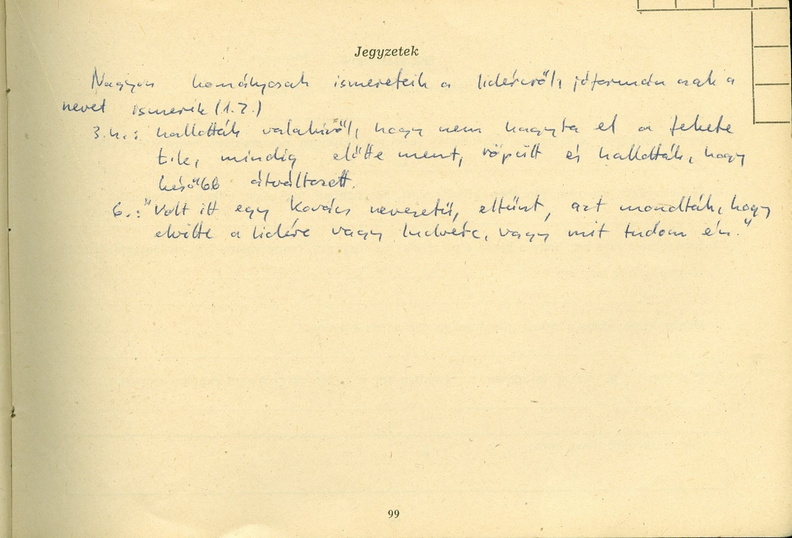 Jegyzetek
Nagyon homályosak ismereteik a lidércről, jóformán csak a
nevet ismerik (1.2.)
3.h.: hallották valakiről, hogy nem hagyta el a fekete
tik, mindig előtte ment, röpült és hallották, hogy
később átváltozott.
6.: "Volt itt egy Kovács nevezetű, eltünt, azt mondták, hogy
elvitte a lidérc vagy ludvérc, vagy mit tudom én."
99